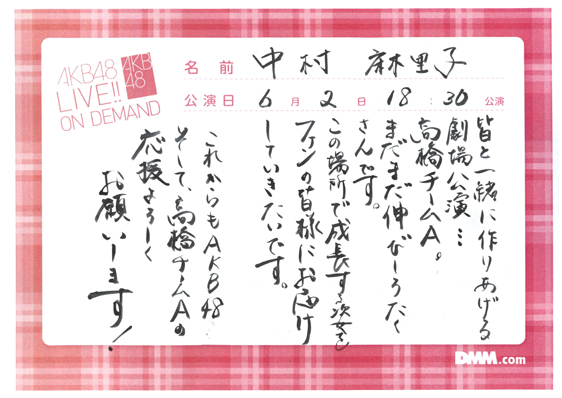 AKB48
LIVE!!
ON DEMAND
AKB
48
名前 中村 麻里子
公演日 6月2日 18:30公演
皆と一緒に作りあげる
劇場公演…
高橋チームA。
まだまだ伸びしろたく
さんです。
この場所で成長する姿を
ファンの皆様にお届け
していきたいです。
これからもAKB48
そして、高橋チームAの
応援よろしく
お願いします!
DMM.com